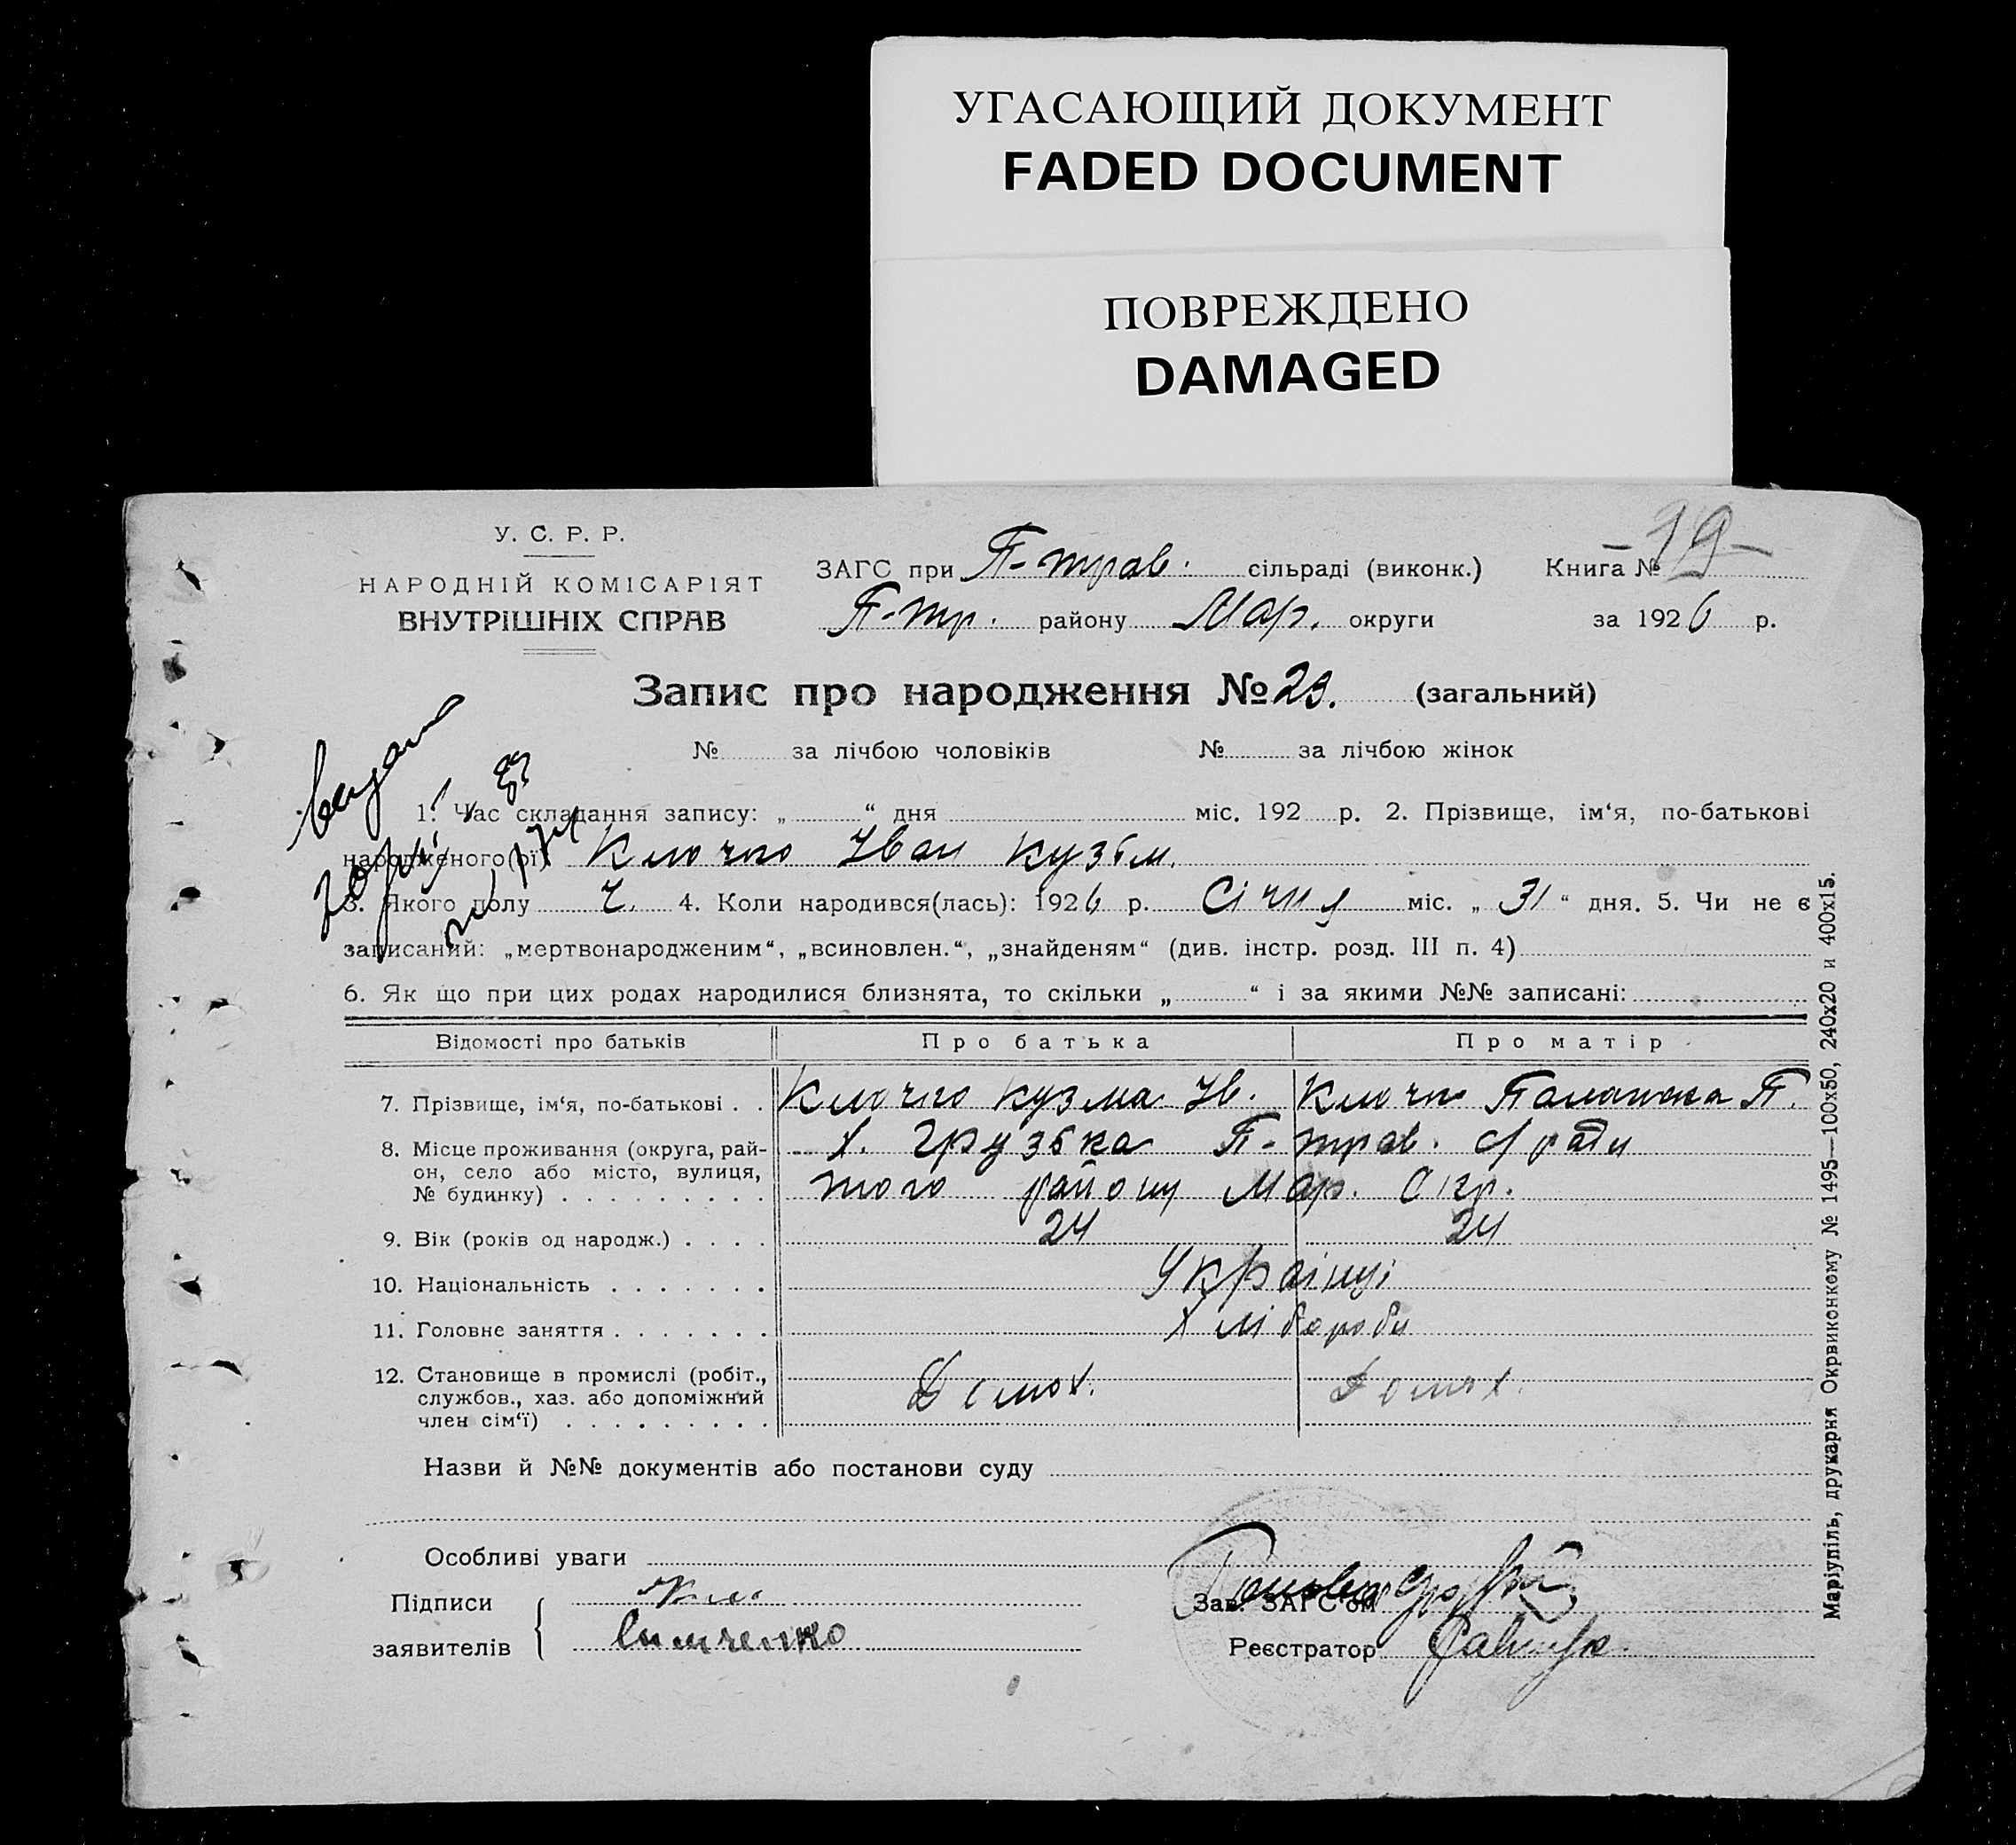 УГАСАЮЩИЙ ДОКУМЕНТ
FADED DOCUMENT
ПОВРЕЖДЕНО
DAMAGED
У. С. Р. Р.
НАРОДНІЙ КОМІСАРІЯТ
ВНУТРІШНІХ СПРАВ
ЗАГС при П-трав. сільраді (виконк.) Книга № 19
П-тр. району Мар. округи за 1926 р.
Запис про народження № 23. (загальний)
№ за лічбою чоловіків № за лічбою жінок
1. Час складання запису: „ “ дня міс. 192 р. 2. Прізвище, ім‘я, по-батькові
народженого(ої) Клочко Іван Кузьм.
3. Якого полу Ч. 4. Коли народився(лась): 1926 р. Січня міс. „ 31 “ дня. 5. Чи не є
записаний: „мертвонародженим“, „всиновлен.“, „знайденям“ (див. інстр. розд. III п. 4)
6. Як що при цих родах народилися близнята, то скільки „ “ і за якими №№ записані:
Відомості про батьків Про батька Про матір
7. Прізвище, ім‘я, по-батькові . . Клочко Кузма Ів. Клочко П.
8. Місце проживання (округа, рай- х. Грузька П-трав. с/ради
он, село або місто, вулиця,
№ будинку) . . . . . . . . . того району Мар. Окр.
9. Вік (років од народж.) . . . . 24 24
10. Національність . . . . . . . Українці
11. Головне заняття . . . . . . . Хлібороби
12. Становище в промислі (робіт.,
службов., хаз. або допоміжний Домох. Домох.
член сім‘ї) . . . . . . . . .
Назви й №№ документів або постанови суду
Особливі уваги
Підписи
заявителів
Зав. ЗАГС‘ом
Реєстратор
Маріупіль, друкарня Окрвиконкому № 1495—100х50, 240х20 и 400х15.